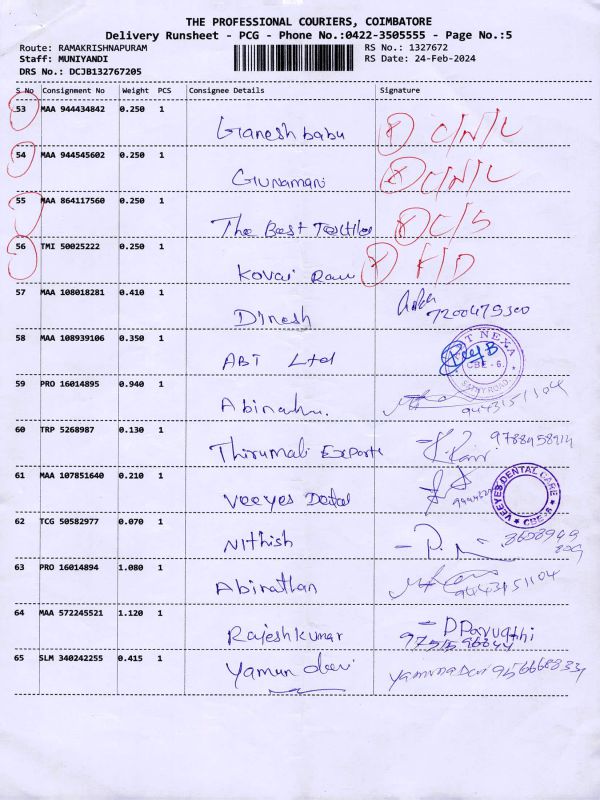 THE PROFESSIONAL COURIERS, COIMBATORE
Delivery Runsheet - PCG - Phone No.:0422-3505555 - Page No.:5
Route: RAMAKRISHNAPURAM RS No.: 1327672
Staff: MUNIYANDI RS Date: 24-Feb-2024
DRS No.: DCJB132767205
S No Consignment No Weight PCS Consignee Details Signature
53 MAA 944434842 0.250 1
Ganesh babu X C/N/L
54 MAA 944545602 0.250 1
Gunamani X C/N/L
55 MAA 864117560 0.250 1
The Best Textiles X C/S
56 TMI 50025222 0.250 1
Kovai Ram X F/D
57 MAA 108018281 0.410 1
Dinesh 7200479300
58 MAA 108939106 0.350 1
ABT Ltd T NEXA CBE-6.
59 PRO 16014895 0.940 1
9443151104
60 TRP 5268987 0.130 1
Thirumali Exports
61 MAA 107851640 0.210 1
Veeyes Dental VEEYES DENTAL CARE CBE-6
62 TCG 50582977 0.070 1
Nithish
63 PRO 16014894 1.080 1
Abirathan 9443151104
64 MAA 572245521 1.120 1
Rajeshkumar
65 SLM 340242255 0.415 1
Yamuna devi Yamuna Devi